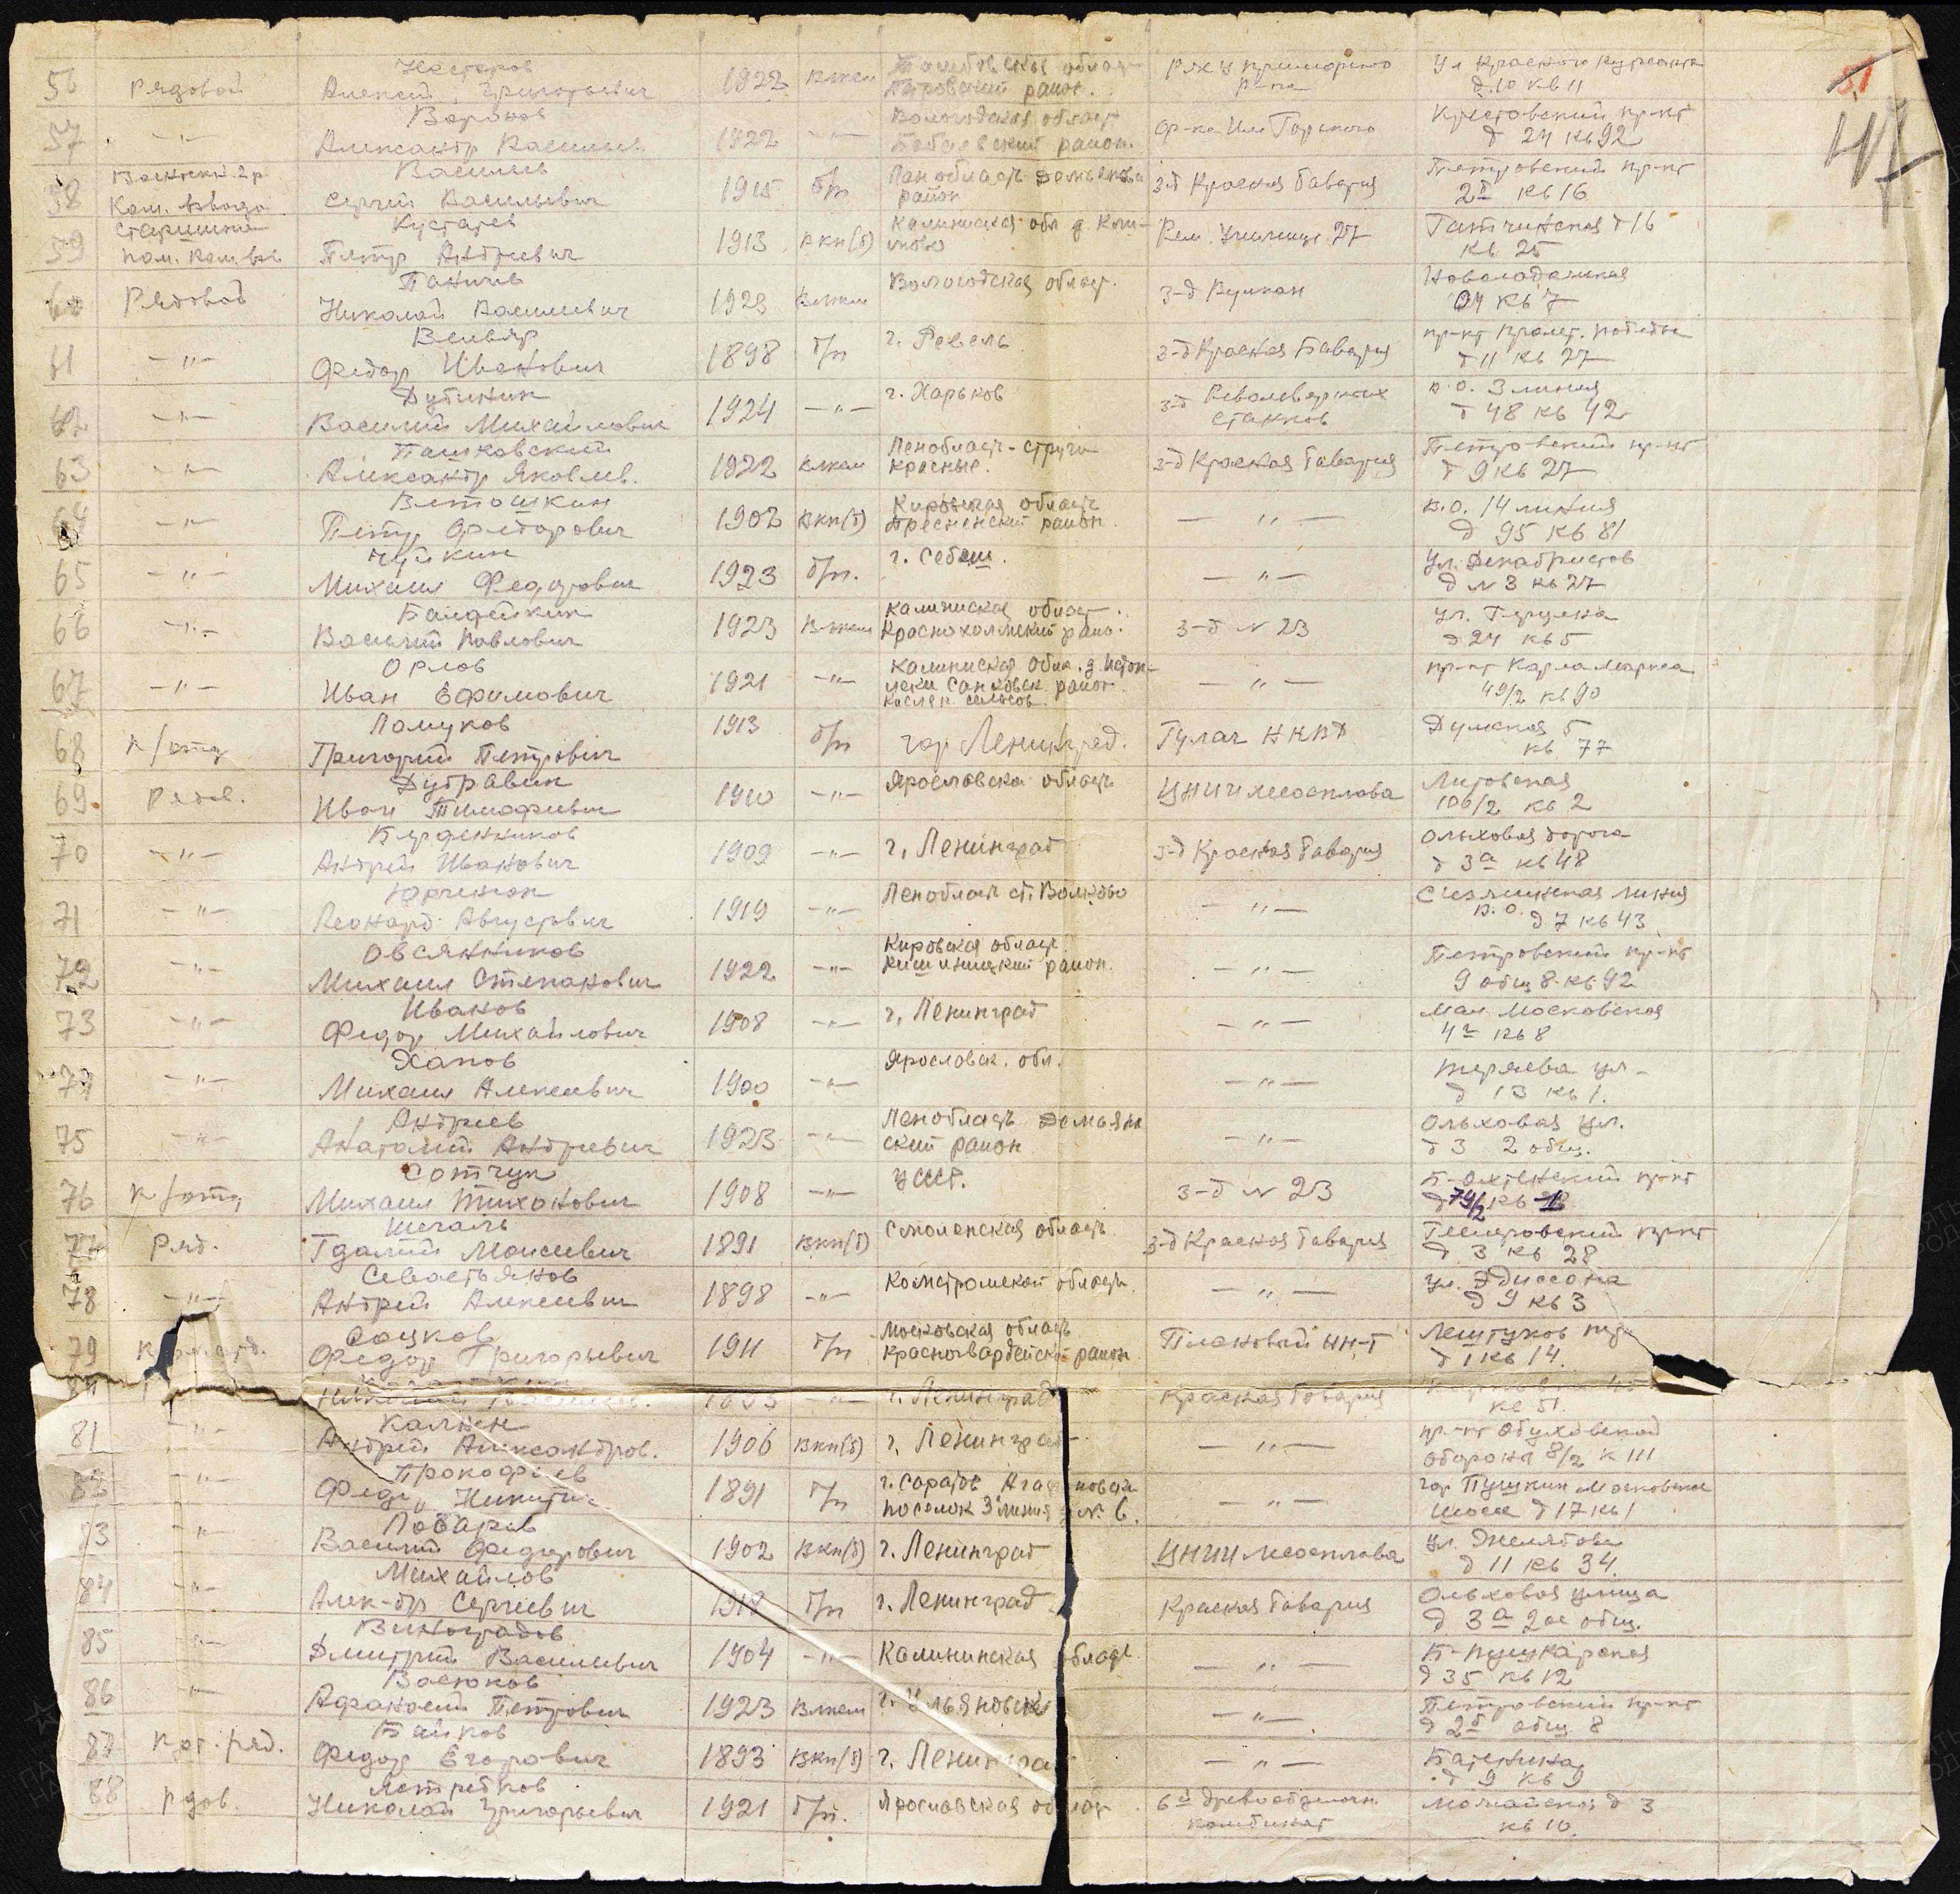 51
47
56 Рядовой Нестеров Алексей Григорьевич 1922 влксм Тамбовская област Петровский район. РЖУ приморского р-на Ул Красного Курсанта д. 10 кв 11
57 —"— Воронов Александр Васильев. 1922 —"— Вологодская област Бабаевский район. ф-ка Им Горького Крестовский пр-кт д 24 кв 92
58 Воентехн. 2 р Ком. взвода Васильев Сергей Васильевич 1915 б/п Ленобласть Демьянск район з-д Красная Бавария Петровский пр-кт 2 кв 16
59 Старшина пом. ком. взв Кустарев Петр Андреевич 1913 вкп(б) Калининская обл д. Рем. Училище 27 Гатчинская д 16 кв. 25
60 Рядовой Паничев Николай Васильевич 1923 влксм Вологодская област. з-д Вулкан Новоладожская кв 7
61 —"— Федор Иванович 1898 б/п г. Ревель з-д Красная Бавария пр-кт Пролет. победы д 11 кв 27
62 —"— Василий Михайлович 1924 —"— г. Харьков з-д Револьверных станков в. о. 3 линия д 48 кв 42
63 —"— Пашковский Александр Яковлев. 1922 влксм Ленобласт-Струги красные. з-д Красная Бавария Петровский пр-кт д 9 кв 27
64 —"— Ветошкин Петр Федорович 1902 вкп(б) Кировская область район. —"— в. о. 14 линия д 95 кв 81
65 —"— Чуйкин Михаил Федорович 1923 б/п. г. Себеш. —"— Ул. Декабристов д N 3 кв 27
66 —"— Василий Павлович 1923 влксм Калининская област. Краснохолмский район. з-д N 23 ул. Герцена д 24 кв 5
67 —"— Орлов Иван Ефимович 1921 —"— Калининская Обла. д. Сонковск. район. —"— пр-кт Карла Маркса 49/2 кв 90
68 к/отд Ломуков Григорий Петрович 1913 б/п гор Ленинград. Гулаг НКВД Думская 5 кв 77
69 рядов. Дубравин Иван Тимофеевич 1910 —"— Ярославска область ЦНИИ лесосплава Лиговская 106/2 кв 2
70 —"— Андрей Иванович 1909 —"— г. Ленинград з-д Красная Бавария Ольховая дорога д 3а кв 48
71 —"— Леонард Августович 1919 —"— Ленобласт ст. Волхово —"— Съезжинская линия в. о. д 7 кв 43
72 —"— Овсянников Михаил Степанович 1922 —"— Кировская област. район. —"— Петровский пр-кт 9 общ 8 кв 92
73 —"— Иванов Федор Михайлович 1908 —"— г. Ленинград —"— Мал Московская 4 кв 8
74 —"— Хапов Михаил Алексеевич 1900 —"— Ярославск. обл. —"— Теряева ул- д 13 кв 1.
75 —"— Андреев Анатолий Андреевич 1923 —"— Ленобласть Демьян ский район —"— Ольховая ул. д 3 2 общ.
76 к/отд Сотчук Михаил Тихонович 1908 —"— УССР. з-д N 23 Б-Охтенский пр-кт д 79/2 кв
77 ряд. Шегаль Гдалий Моисеевич 1891 вкп(б) Смоленская область з-д Красная Бавария пр-кт д 3 кв 28
78 —"— Севостьянов Андрей Алексеевич 1898 —"— Костромской область —"— ул. Эдиссона д 9 кв 3
79 Сошков Федор Григорьевич 1911 б/п Московская область Красногвардейский район Плановый ин-т Лештуков пер д 1 кв 14.
80 Николай 1893 —"— г. Ленинград Красная Бавария кв 51.
81 —"— Калнен Андрей Александров. 1906 вкп(б) г. Ленинград —"— пр-кт Обуховской обороны 8/2 к 111
82 —"— Прокофьев Федор Никитич 1891 б/п г. Саратов поселок 3 линия N. 6. —"— гор Пушкин Московское шоссе д 17 кв 1
83 —"— Василий Федорович 1902 вкп(б) г. Ленинград ЦНИИ лесосплава ул. Желябова д 11 кв 34
84 —"— Михайлов Алек-др Сергеевич 1918 б/п г. Ленинград Красная Бавария Ольховая улица д 3а 2ое общ.
85 —"— Виноградов Дмитрий Васильевич 1904 —"— Калининская област —"— Б-Пушкарская д 35 кв 12
86 —"— Васюков Афанасий Петрович 1923 влксм г. Ульяновск —"— Петровский пр-кт д 2б общ 8
87 ряд. Байков Федор Егорович 1893 вкп(б) г. Ленинград —"— Батенина д 9 кв 9
88 рдов. Ястребков Николай Григорьевич 1921 б/п. Ярославская област 6й Древообделочн комбинат Можайская д 3 кв 10.